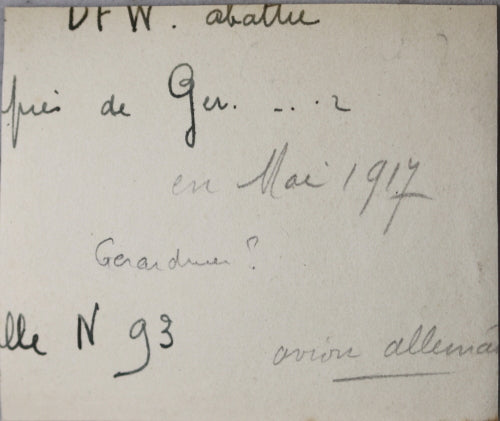 DFW. abattu
près de Ger. ...2
en Mai 1917
Gerardmer ?
lle N 93
avion allema